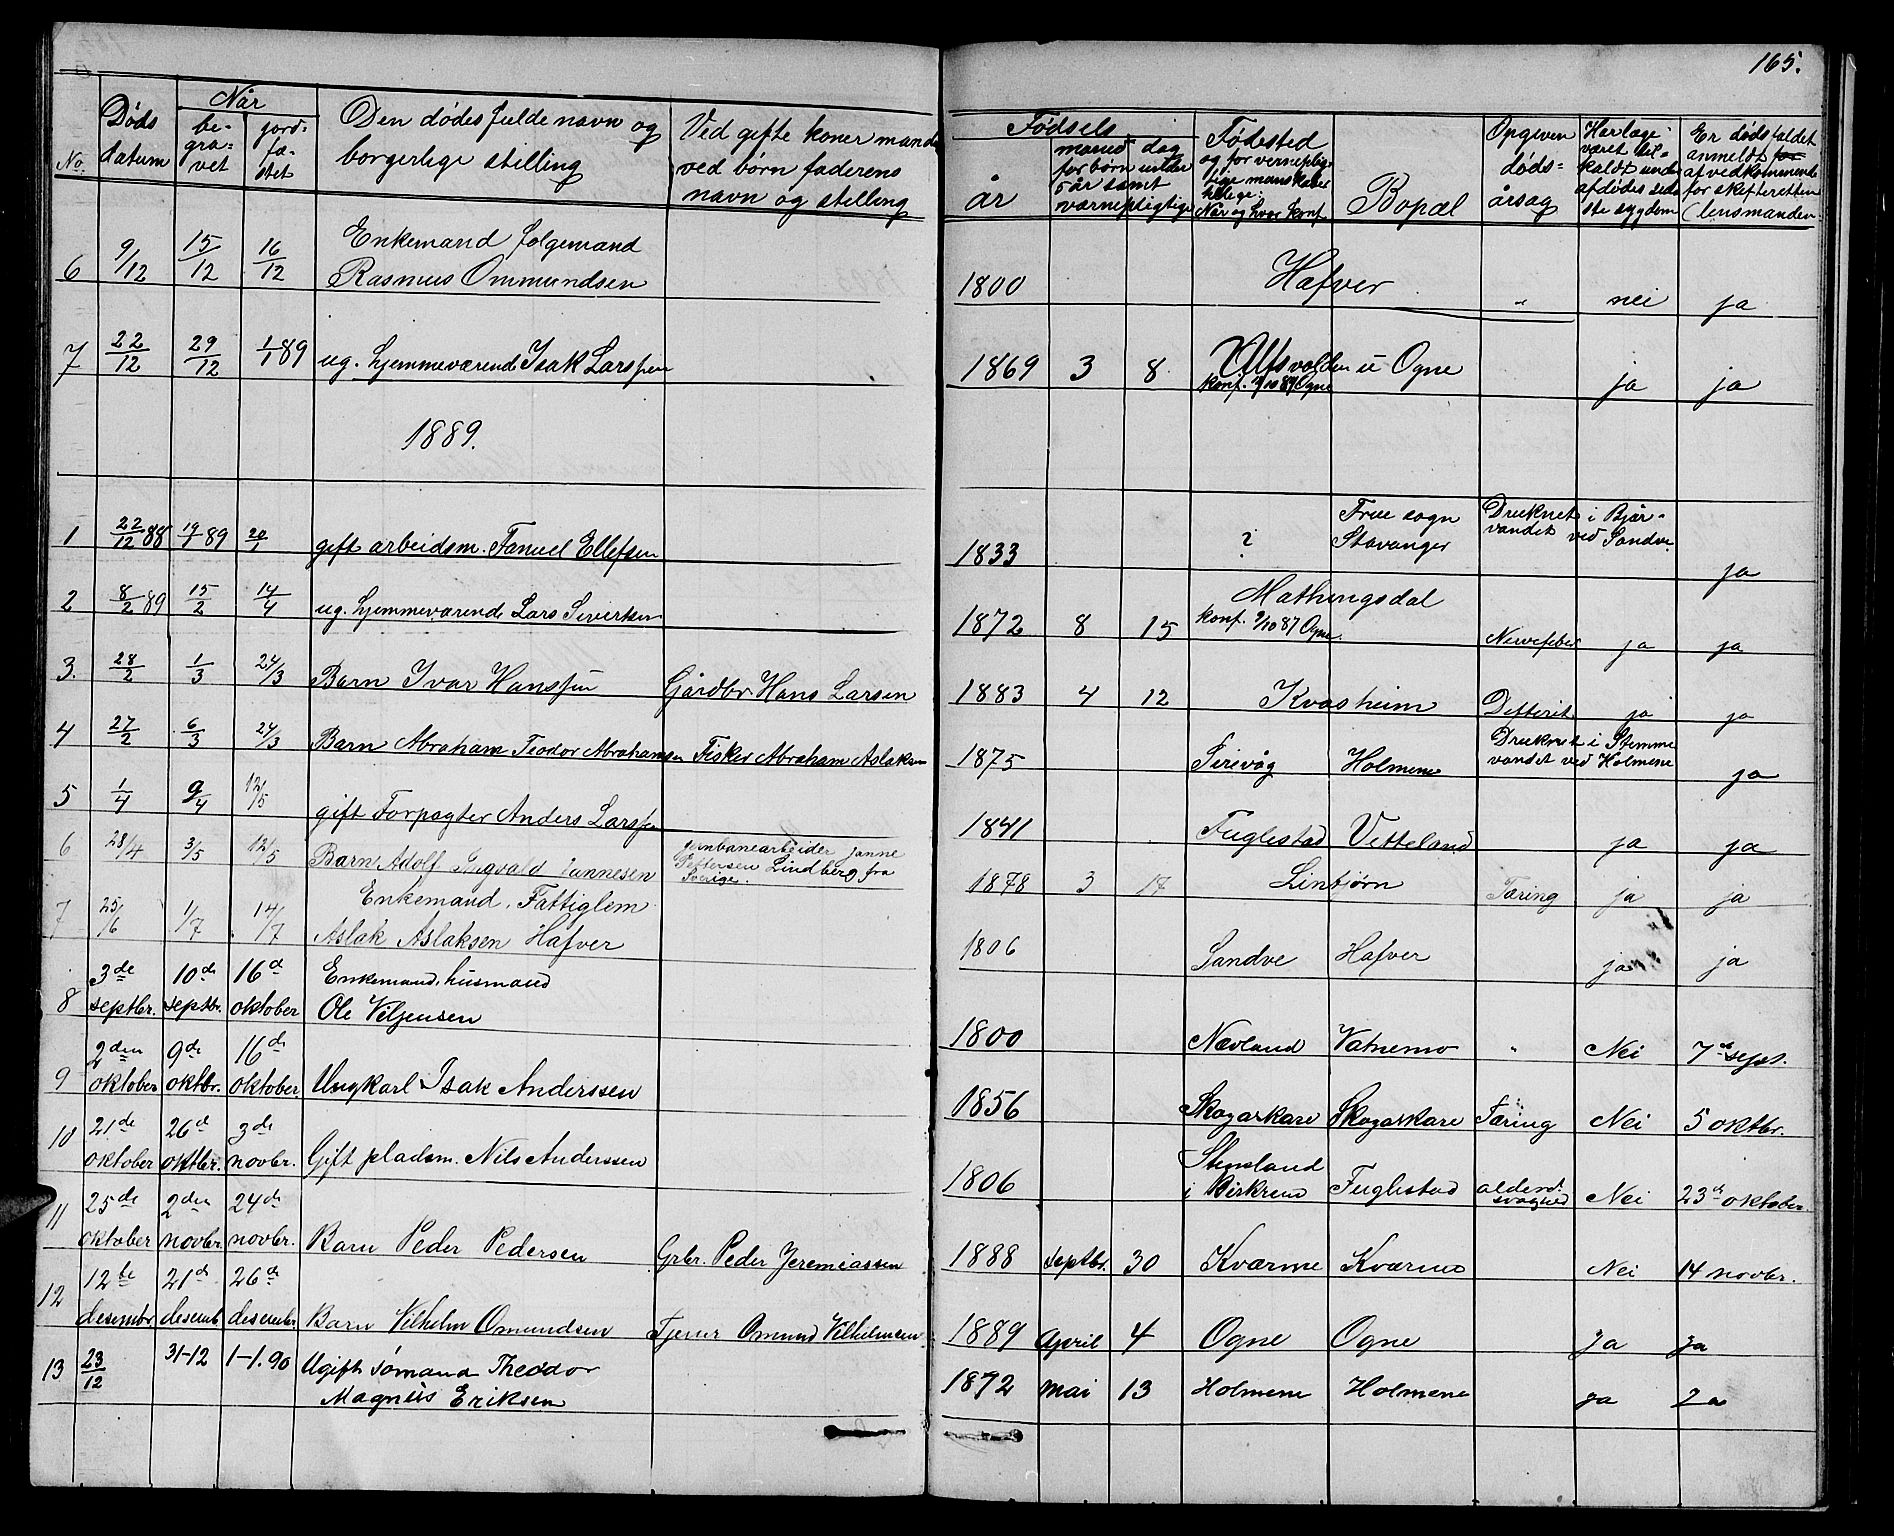 165.
No.
Døds datum
Når
be-
gra-
vet
jord-
fæ-
stet
Den dødes fulde navn og
borgerlige stilling
Ved gifte koner mands
ved børn faderens
navn og stelling
Fødsels
år
månd dag
for børn under
5 år samt
værnepligtige
Fødested
og for vernepligtige mandskaber
tillige:
Når og hvor konf.
Bopæl
Opgiven
døds-
årsag
Har læge
været til-
kaldt under
afdødes sid-
ste sygdom
Er dødsfaldet
anmeldt for
af vedkommende
for skifteretten
(lensmanden
6 9/12 15/12 16/12 Enkemand folgemand
Rasmus Ommundsen 1800 Hafver " nei ja
7 22/12 29/12 1/1 89 ug. hjemmeværende Isak Larssen 1869 3 8 Alfsvolden i Ogne
konf. 9/10 87 Ogne ja ja
1889.
1 22/12 88 19/1 89 20/1 gift arbeidsm. Fanuel Ellefsen 1833 ? Frue sogn
Stavanger Druknet i Bjår-
vandet ved Sandve ja
2 8/2 89 15/2 14/4 ug. hjemmeværende Lars Sivertsen 1872 8 15 Mathingsdal
konf. 9/10 87 Ogne Nervefeber ja ja
3. 28/2 1/3 24/3 Barn Ivar Hanssen Gårdbr Hans Larsen 1883 4 12 Kvasheim Defterit. ja ja
4 27/2 6/3 24/3 Barn Abraham Teodor Abrahamsen Fisker Abraham Aslaksen 1875 Sirevåg Holmene Druknet i Stemme
vandet ved Holmene ja
5 1/4 9/4 12/5 gift Forpagter Anders Larssen 1841 Fuglestad Vetteland ja ja
6 28/4 3/5 12/5 Barn Adolf Ingvald Jannesen jernbanearbeider Janne
Pettersen Lindberg fra
Sverige. 1878 3 17 Lintjørn Tæring ja ja
7 25/6 1/7 14/7 Enkemand, Fattiglem
Aslak Aslaksen Hafver 1806 Sandve Hafver ja ja
8 3de septbr. 10de septbr. 16d oktober Enkemand, husmand
Ole Veljensen 1800 Nævland Vatnemo " Nei 7de sept.
9 2den oktober 9de oktbr. 16de oktober Ungkarl Isak Anderssen 1856 Skogarkare Skogarkare Tæring Nei 5 oktbr.
10 21de oktober 26d oktbr. 3de novbr. Gift pladsm. Nils Anderssen 1806 Stensland
i Birkrem Fuglestad alderd.
svaghed Nei 23de oktober.
11 25de oktober 2den novbr. 24de novbr. Barn Peder Pedersen Grbr. Peder Jeremiassen 1888 septbr. 30 Kværme Kværme Nei 14 novbr.
12 12te desembr. 21d desemb. 26de desembr. Barn Vilhelm Omundsen Tjener Omund Vilhelmsen 1889 April 4 Ogne Ogne Ja Ja
13 23/12 31-12 1-1.90 Ugift Sømand Theodor
Magnus Eriksen 1872 Mai 13 Holmene Holmene ja Ja